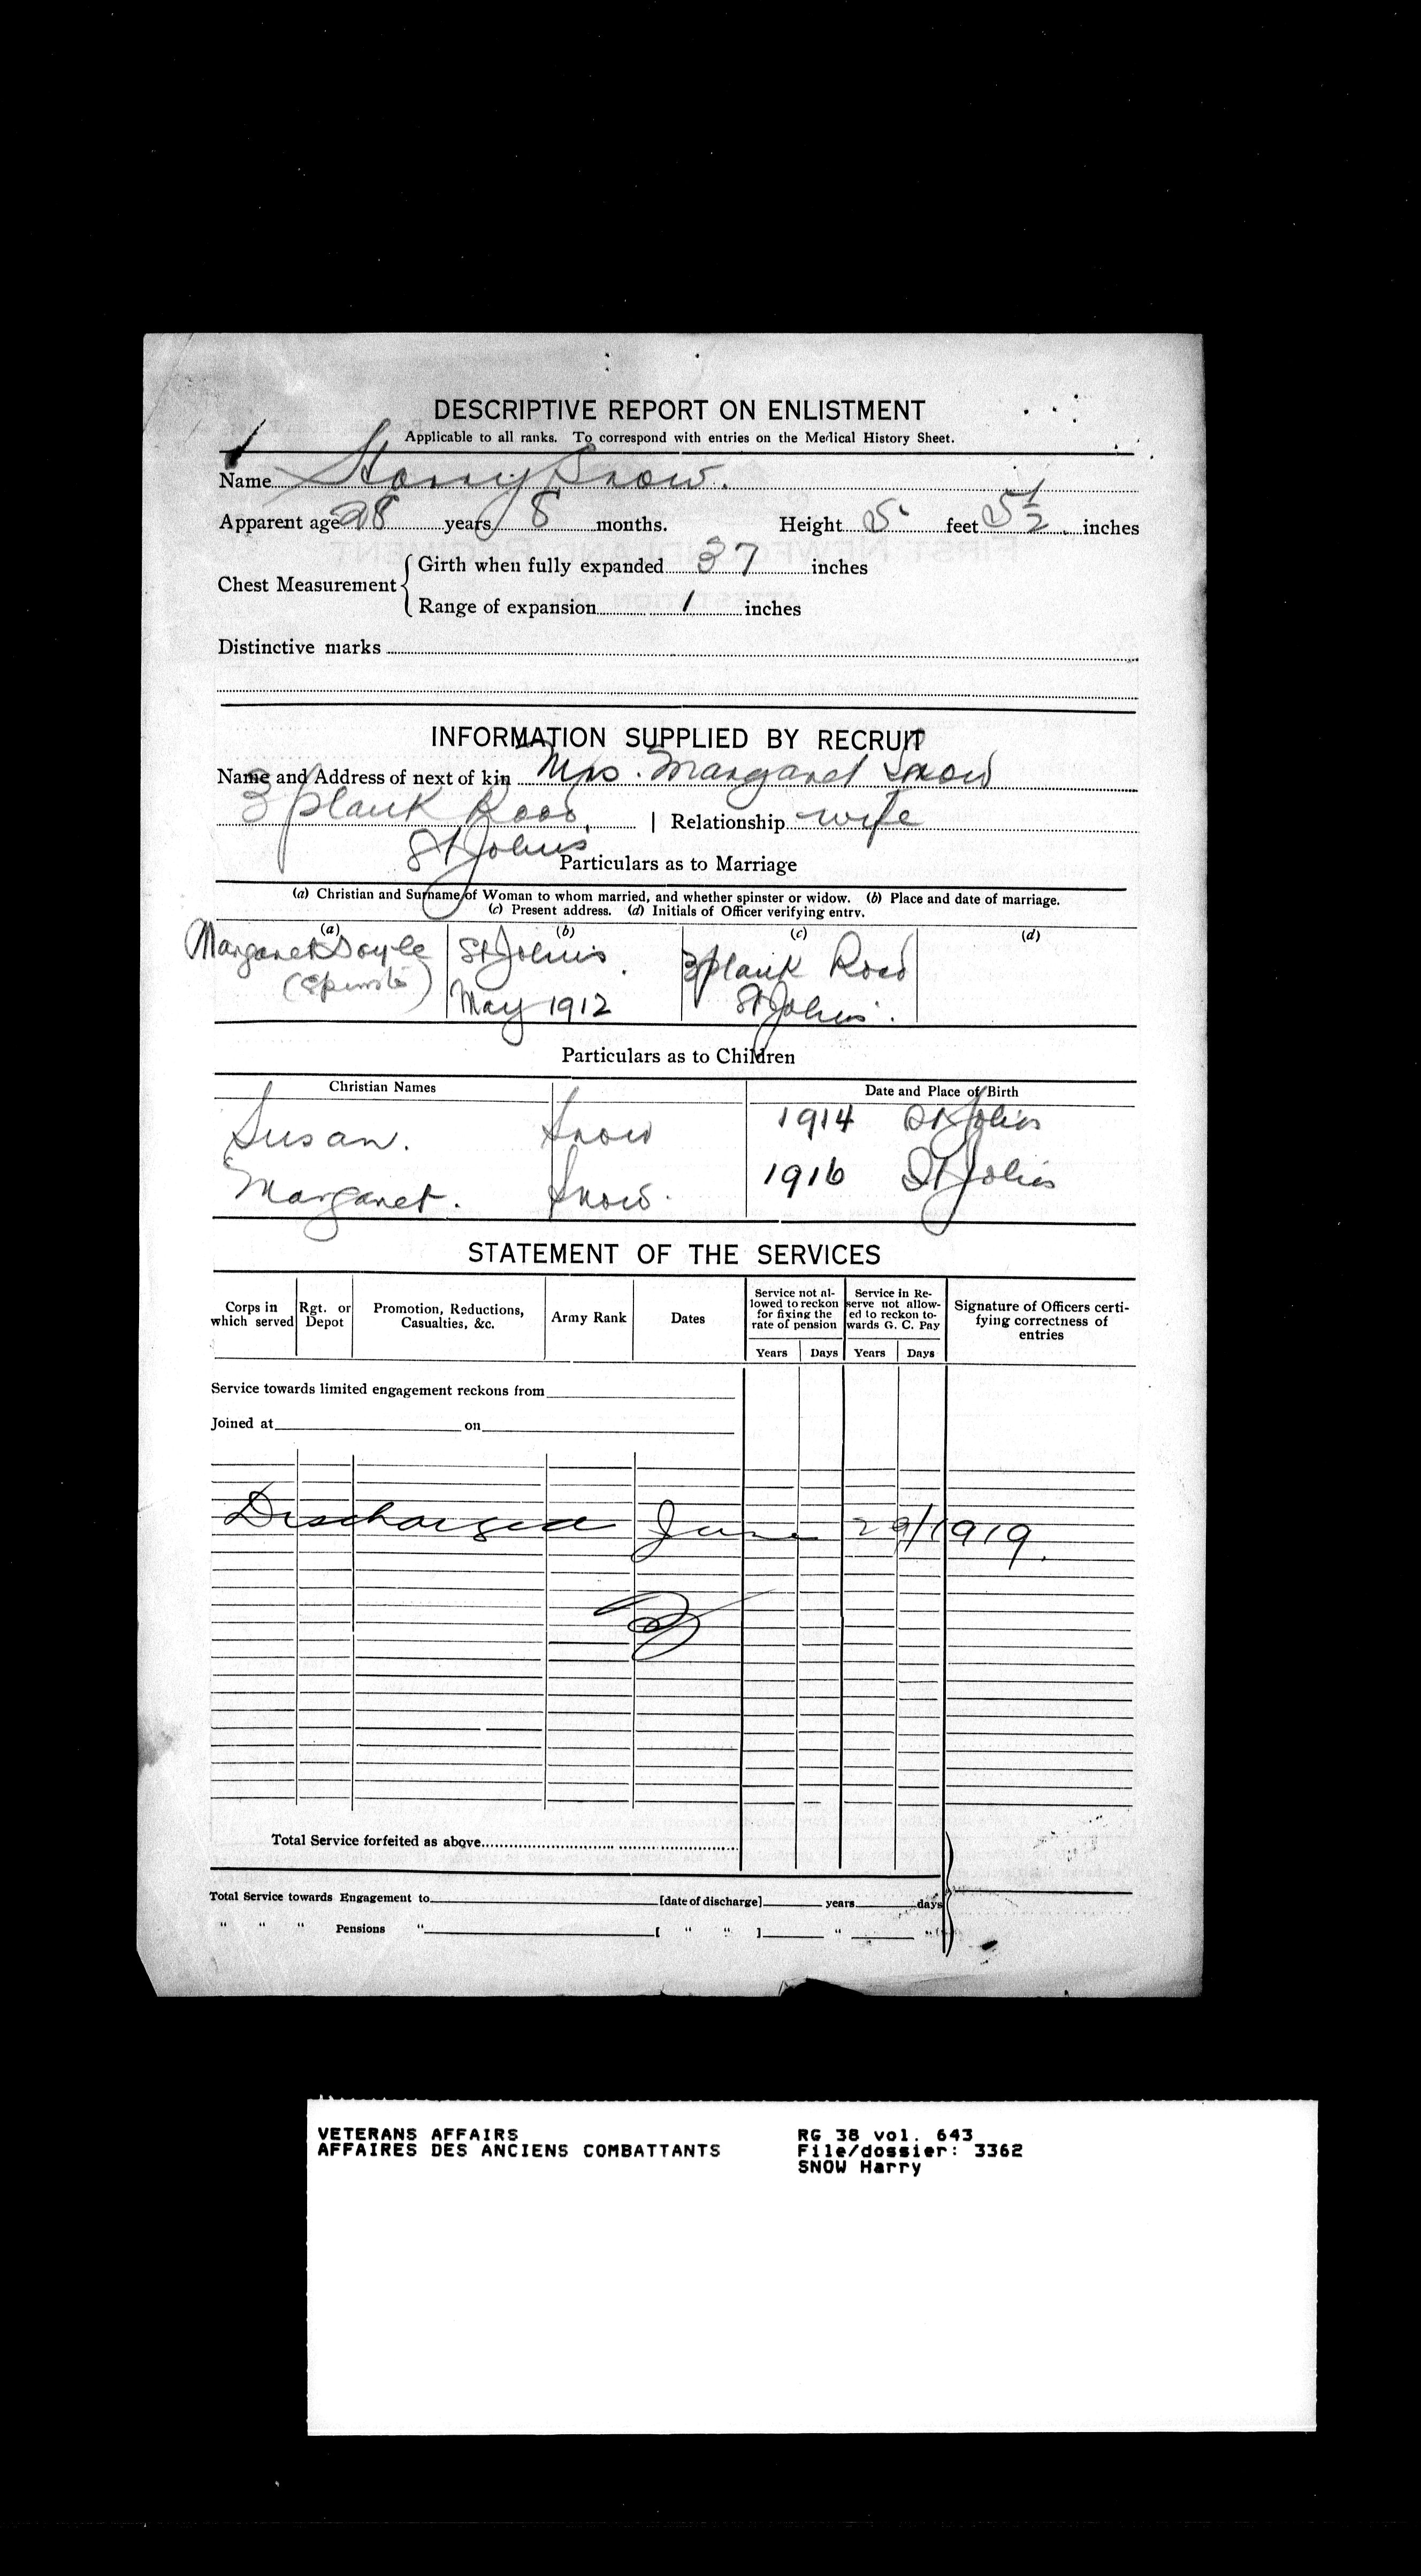 DESCRIPTIVE REPORT ON ENLISTMENT
Applicable to all ranks. To correspond with entries on the Medical History Sheet.
Name Harry Snow.
Apparent age 28 years 8 months. Height 5 feet 5 1/2 inches
Chest Measurement { Girth when fully expanded 37 inches
Range of expansion 1 inches
Distinctive marks
INFORMATION SUPPLIED BY RECRUIT
Name and Address of next of kin Mrs. Margaret Snow
3 plank Road, | Relationship wife
St Johns
Particulars as to Marriage
(a) Christian and Surname of Woman to whom married, and whether spinster or widow. (b) Place and date of marriage.
(c) Present address. (d) Initials of Officer verifying entry.
(a) (b) (c) (d)
Margaret Doyle St Johns. 3 plank Road
(Spinster) May 1912 St Johns.
Particulars as to Children
Christian Names Date and Place of Birth
Susan. Snow 1914 St Johns
Margaret. Snow. 1916 St Johns
STATEMENT OF THE SERVICES
Corps in which served Rgt. or Depot Promotion, Reductions, Casualties, &c. Army Rank Dates Service not allowed to reckon for fixing the rate of pension Service in Reserve not allowed to reckon towards G. C. Pay Signature of Officers certifying correctness of entries
Years Days Years Days
Service towards limited engagement reckons from
Joined at on
Discharged June 29/1919.
Total Service forfeited as above
Total Service towards Engagement to [date of discharge] years days
" " " Pensions " [ " " ] " "
VETERANS AFFAIRS RG 38 vol. 643
AFFAIRES DES ANCIENS COMBATTANTS File/dossier: 3362
SNOW Harry